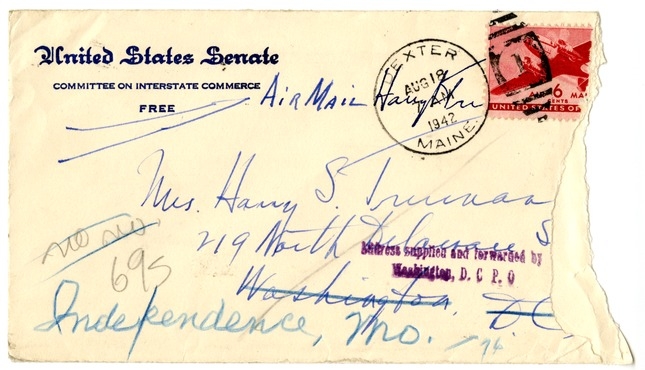 United States Senate
COMMITTEE ON INTERSTATE COMMERCE
FREE
AIR MAIL Harry
DEXTER
AUG 18
AM
1942
MAINE
6
CENTS
UNITED STATES OF
Mrs. Harry S. Truman
219 North Delaware S
Address supplied and forwarded by
Washington, D. C P. O
Washington, D.C
no no
695
Independence, Mo.